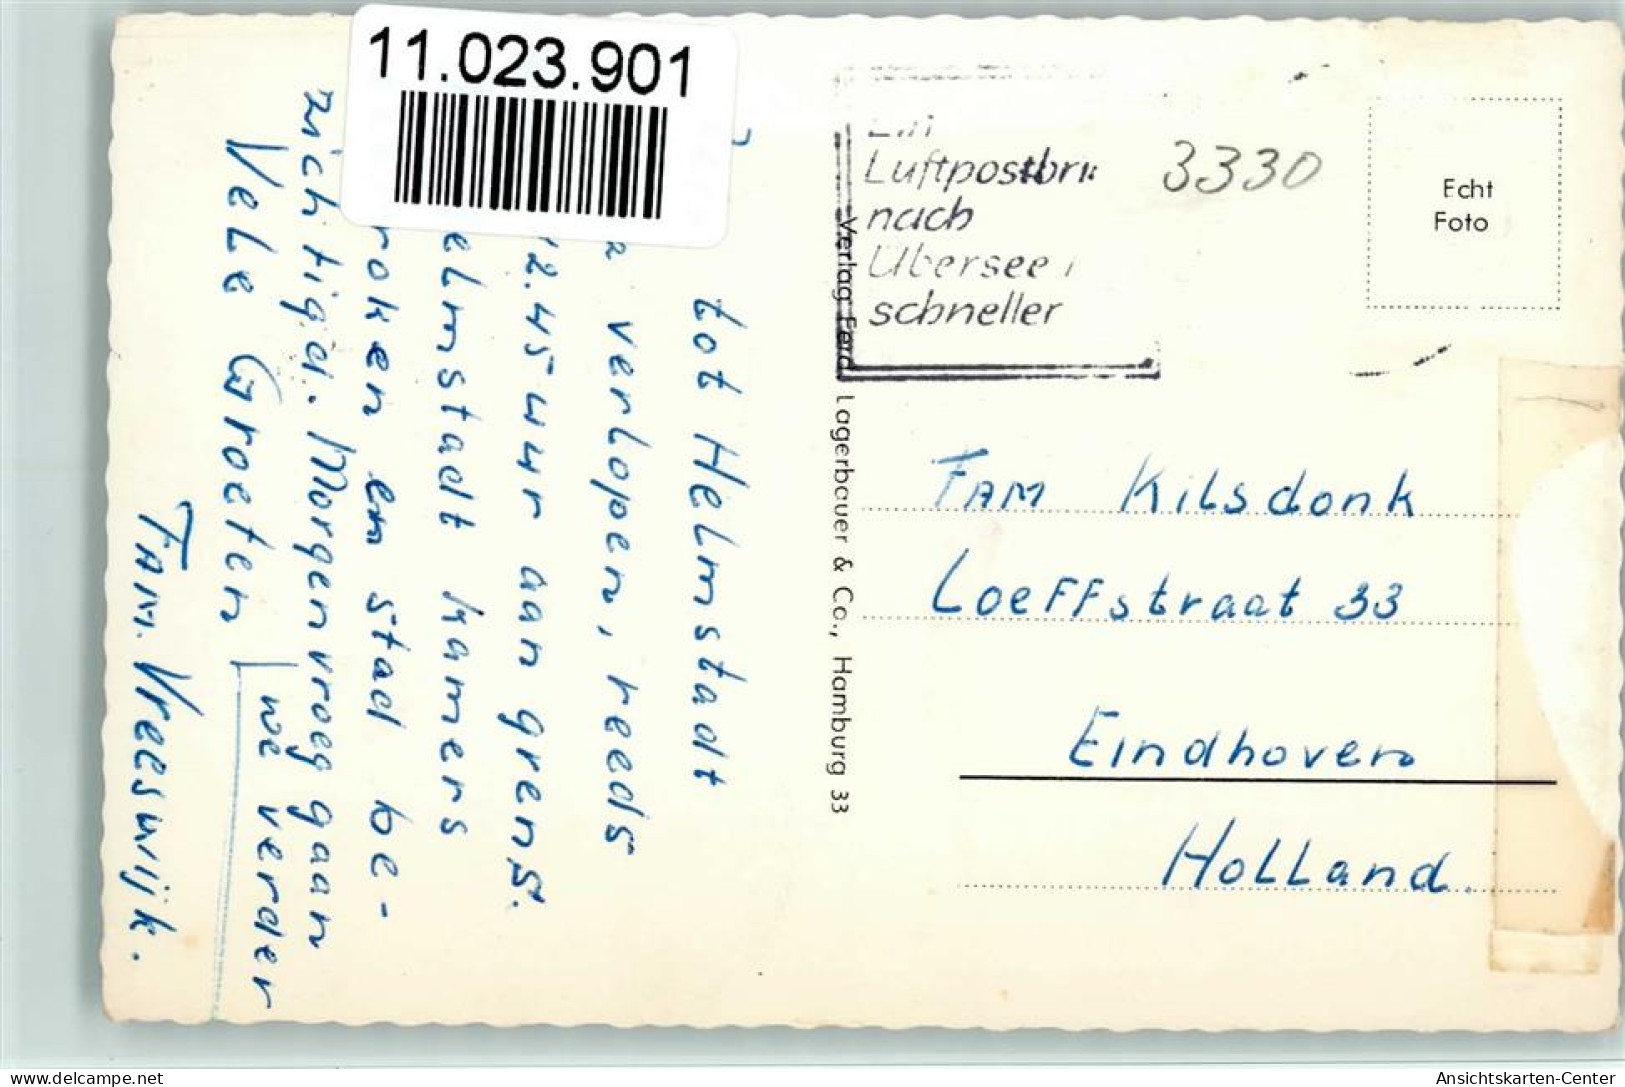 11.023.901
tot Helmstadt
verlopen, reeds
12.45 uur aan grens.
elmstadt kamers
roken en stad be-
zichtigd. Morgen vroeg gaan
we verder
Vele Groeten
Fam. Vreeswijk.
Verlag Ferd. Lagerbauer & Co., Hamburg 33
Ein
Luftpostbri
nach
Übersee i
schneller
3330
Echt
Foto
FAM Kilsdonk
Loeffstraat 33
Eindhoven
Holland.
www.delcampe.net
PHILUX
Ansichtskarten-Center